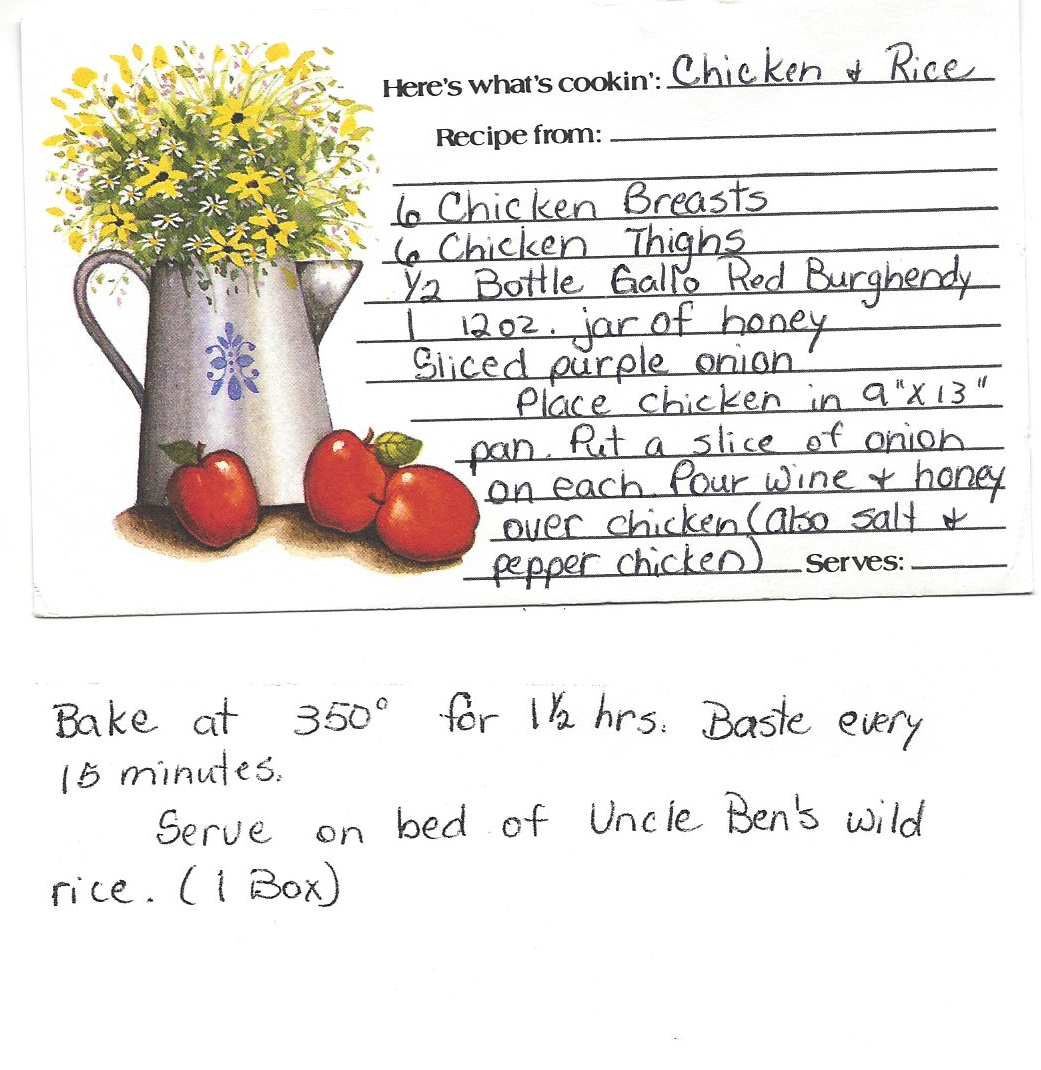 Here's what's cookin': Chicken & Rice
Recipe from:
6 Chicken Breasts
6 Chicken Thighs
1/2 Bottle Gallo Red Burghendy
1 12 oz. jar of honey
Sliced purple onion
Place chicken in 9"X13"
pan. Put a slice of onion
on each. Pour wine & honey
over chicken (also salt &
pepper chicken) Serves:
Bake at 350° for 1 1/2 hrs. Baste every
15 minutes.
Serve on bed of Uncle Ben's wild
rice. (1 Box)